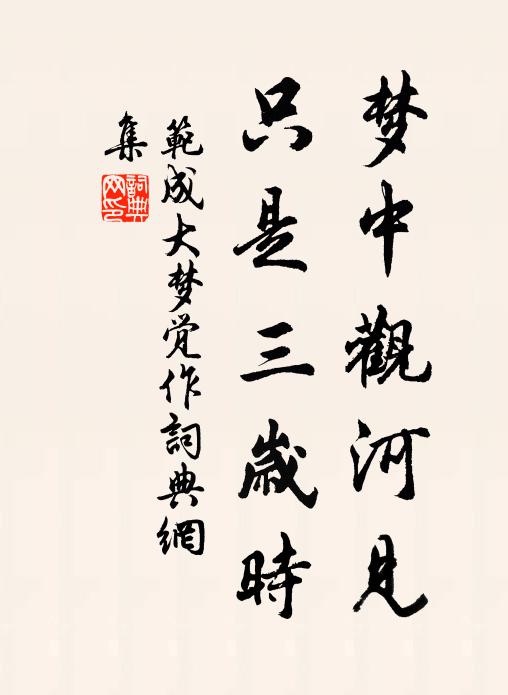 梦中觀河見
只是三歲時
範成大梦觉作詞典網
集
詞典
网印